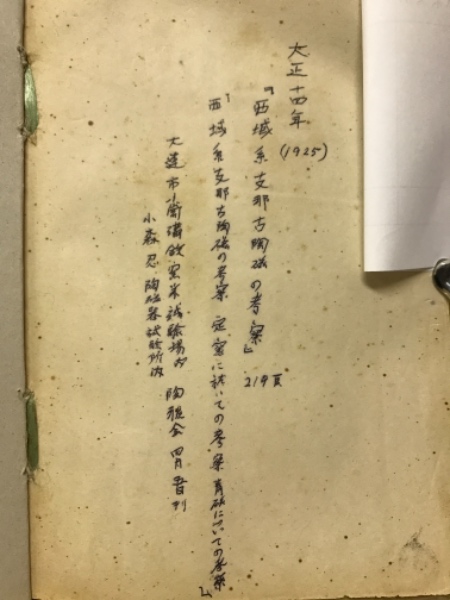 大正十四年
(1925)
『西域系支那古陶磁の考察』
219頁
「西域系支那古陶磁の考察 定窯に就いての考察 青磁についての考察」
大連市小崗子 窯業試験場内 陶雅会 四月五日刊
小森忍 陶磁器試験所内